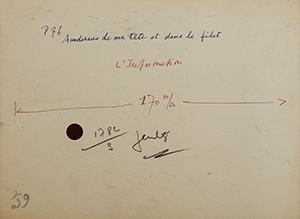 P76 Au dessus de ma tête et dans le filet
L'Information
170 m/m
1782
3
39